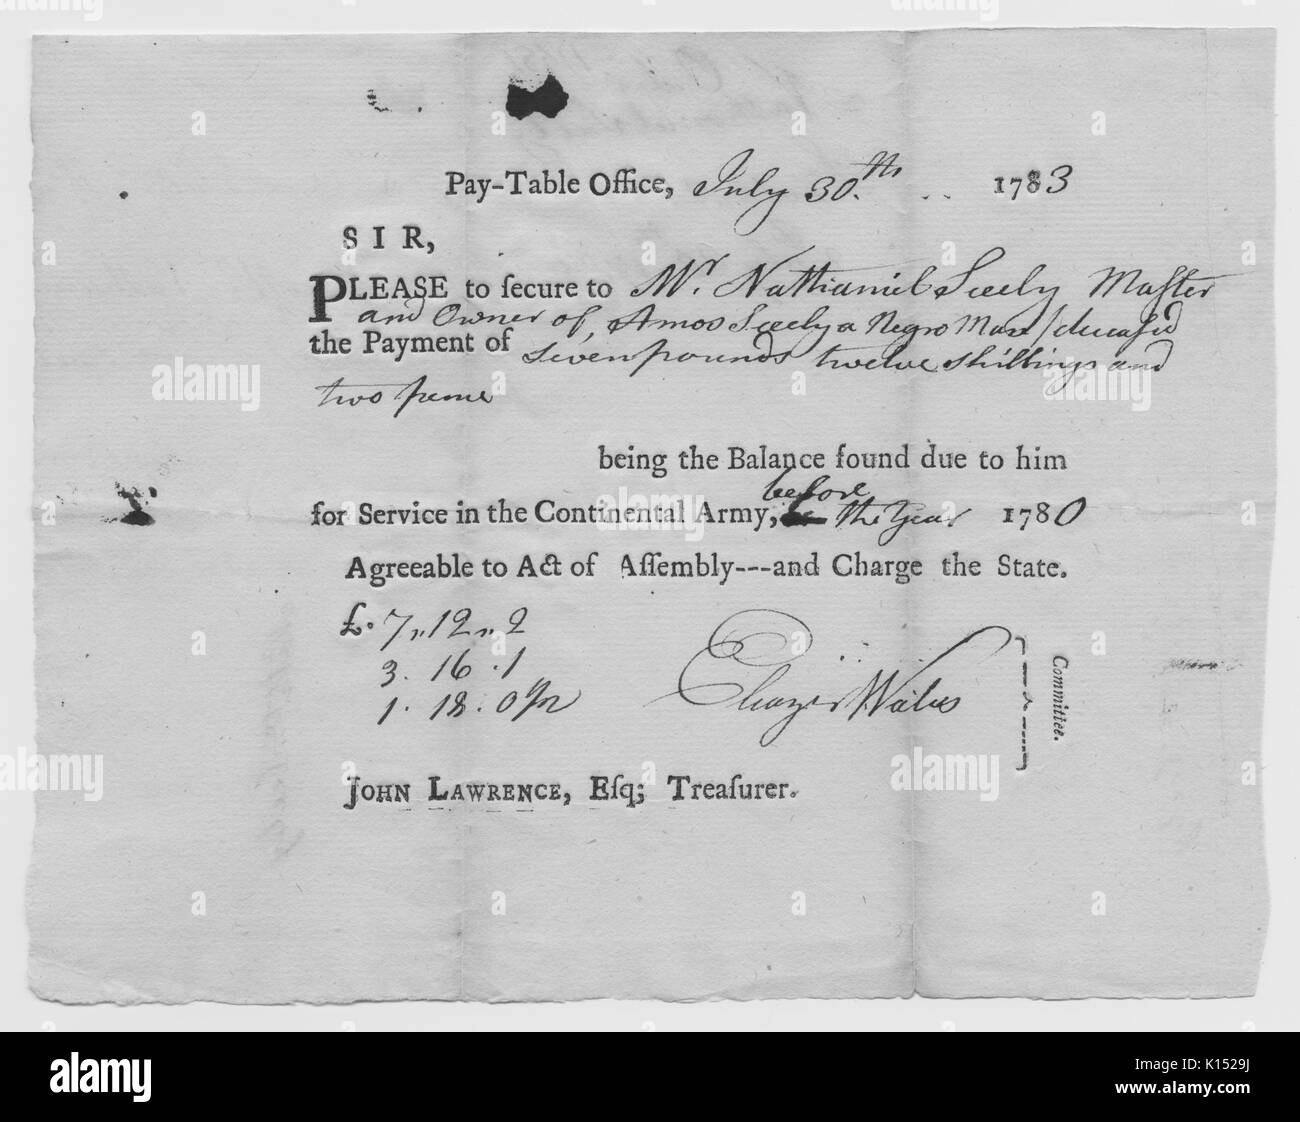 Pay-Table Office, July 30.th .. 1783
SIR,
PLEASE to ſecure to Mr. Nathaniel Seely Maſter
and Owner of, Amos Seely a Negro Man / deceaſed
the Payment of Seven pounds twelve shillings and
two pence
being the Balance found due to him
before
for Service in the Continental Army, the Year 1780
Agreeable to Act of Aſſembly---and Charge the State.
£. 7,,12,,2
3. 16. 1
1. 18. 0½
Eleazer Wales
Committee.
JOHN LAWRENCE, Eſq; Treaſurer.
alamy
Image ID: K1529J
www.alamy.com